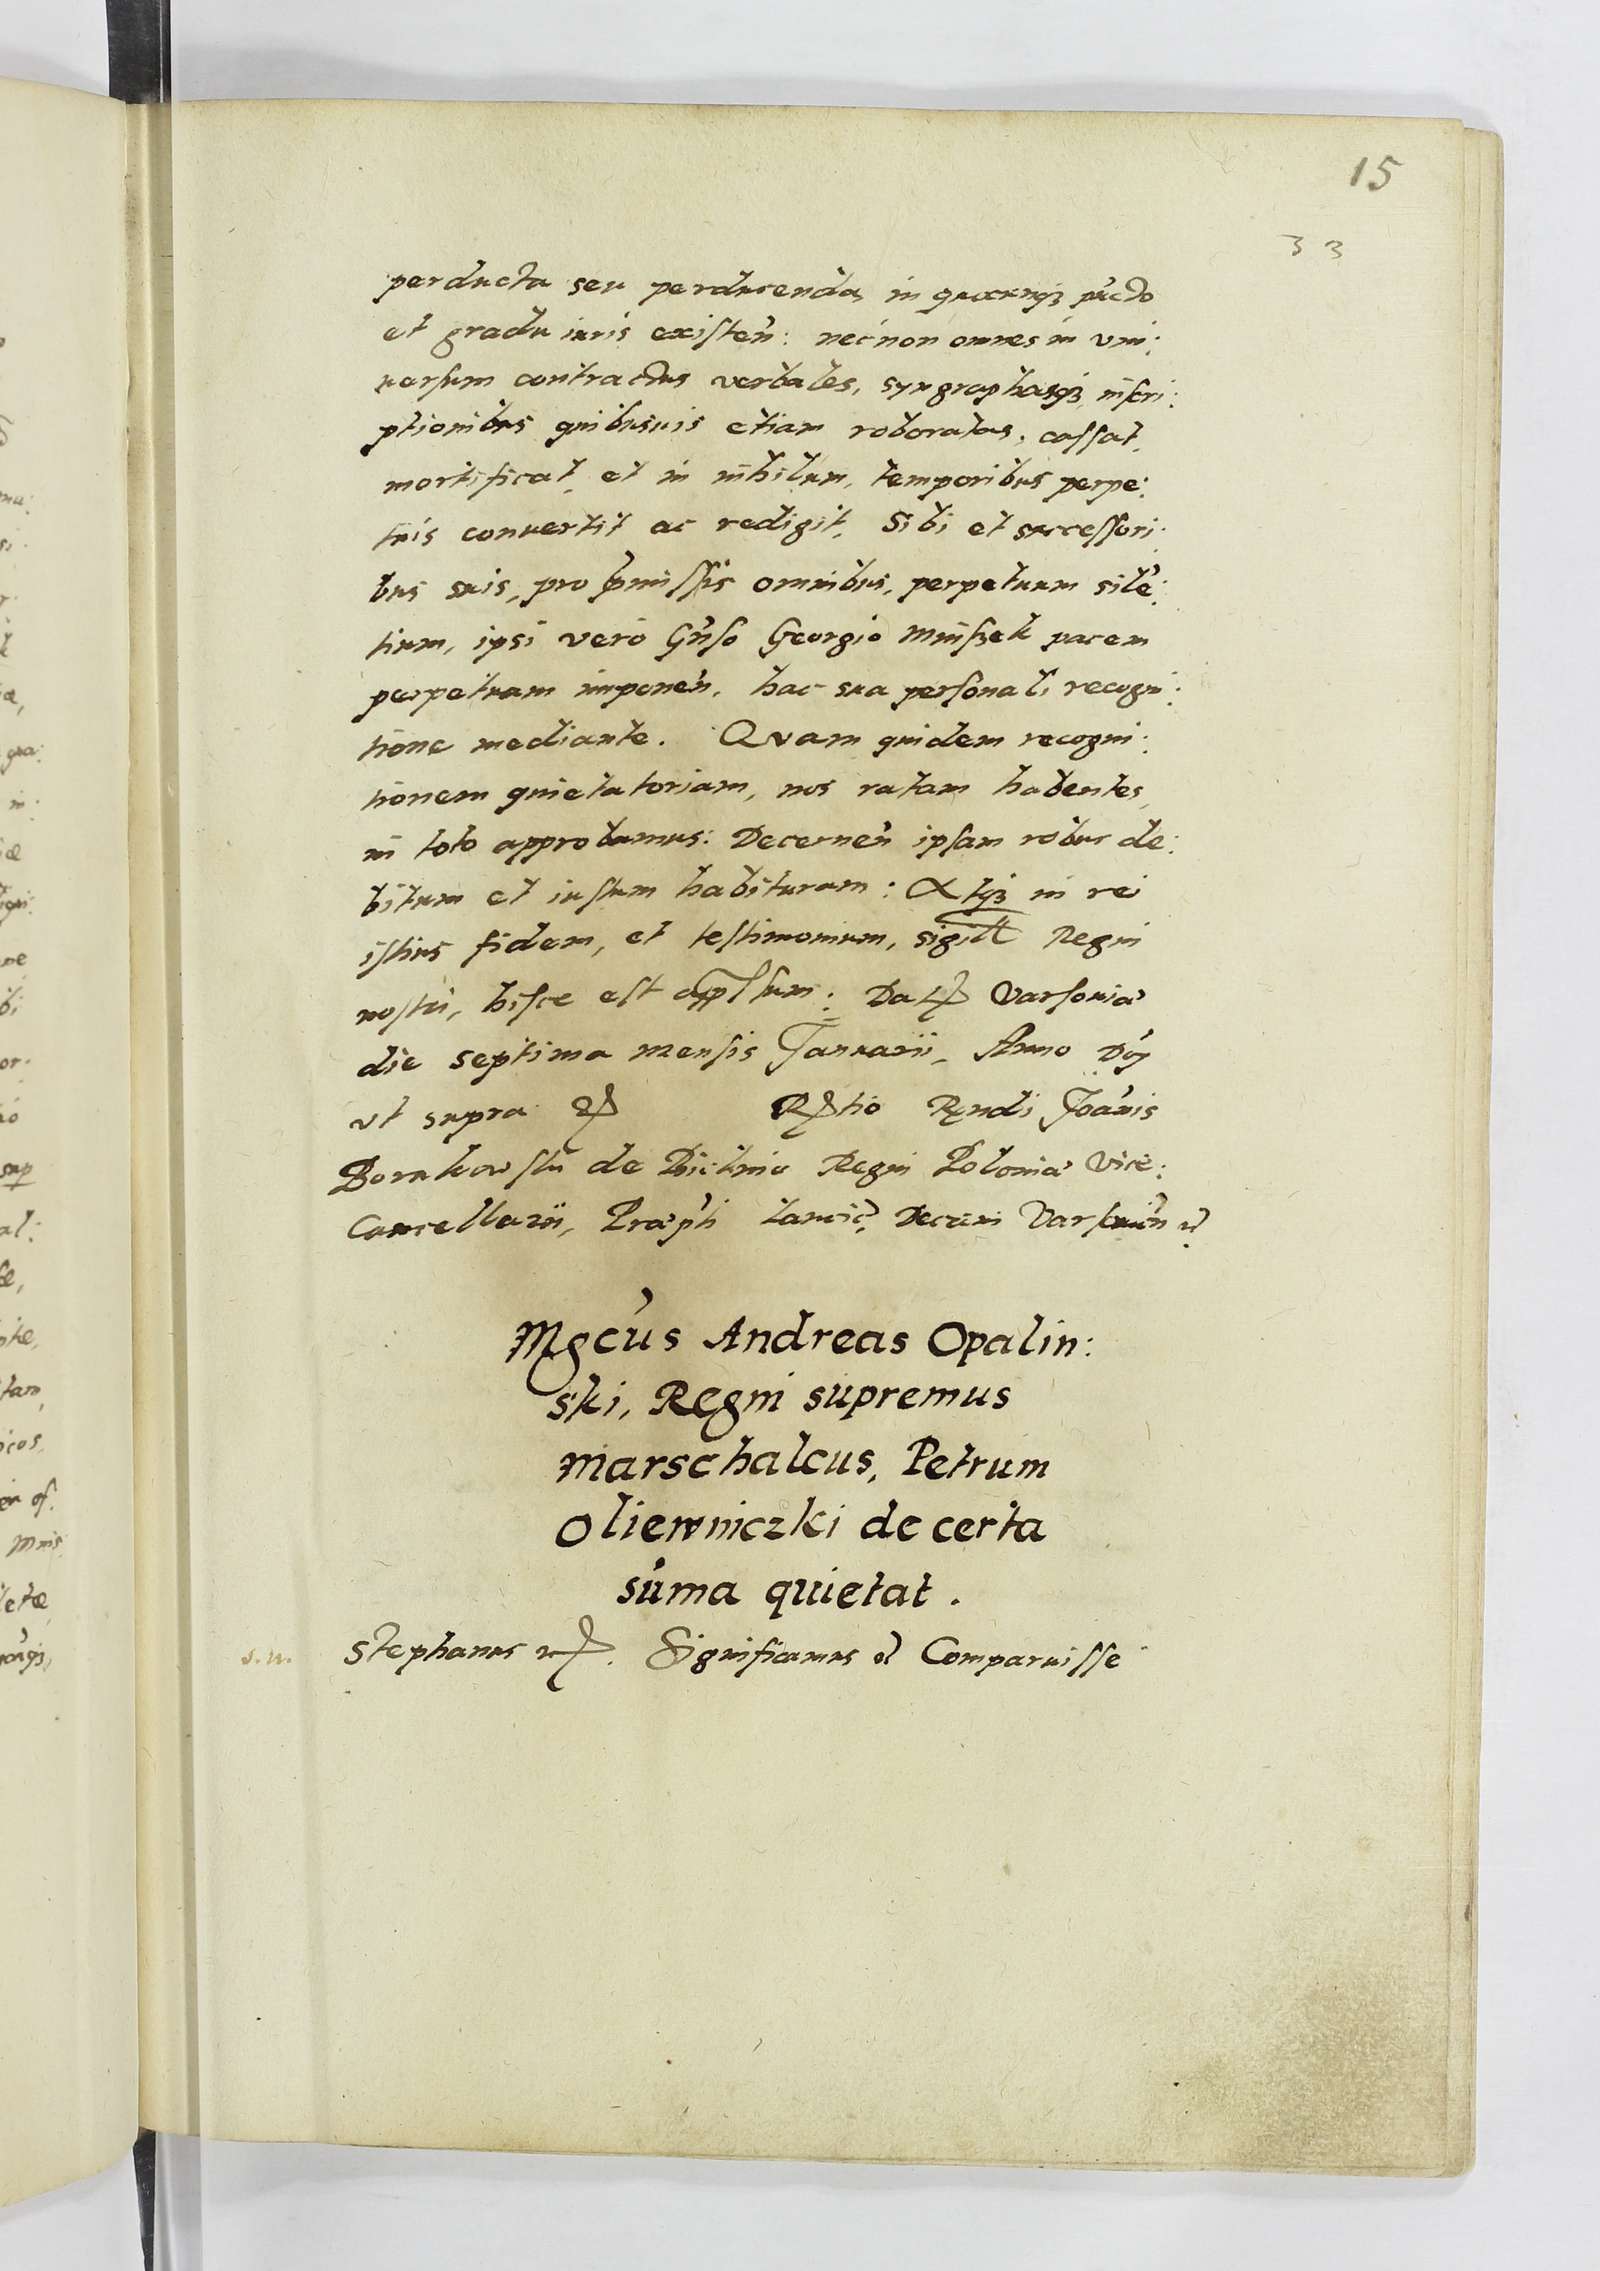 15
33
perducta seu perducenda, in quocunqȝ pūcto
et gradu iuris existeñ: necnon omnes in vni:
uersum contractus verbales, syngraphasqȝ, inscri:
ptionibus quibusuis etiam roboratas, cassat,
mortificat, et in nihilum, temporibus perpe:
tuis conuertit ac redigit, Sibi et successori:
bus suis, pro p̄missis omnibus, perpetuum silē:
tium, ipsi vero Gñso Georgio Mniszek pacem
perpetuam imponeñ, hac sua personali recogni:
tione mediante. Quam quidem recogni:
tionem quietatoriam, nos ratam habentes,
in toto approbamus: Decerneñ ipsam robur de:
bitum et iustum habituram: Atqȝ in rei
istius fidem, et testimonium, sigill Regni
nostri, hisce est app̄ssum: Dat Varsouiæ
die septima mensis Januarii, Anno Dñi
vt supra
Rndi Joānis
Borukowski de Bielino Regni Poloniæ Vice:
Cancellarii, Præpti Lancič, Decani Varsouieñ
Mgcūs Andreas Opalin:
ski, Regni supremus
Marschalcus, Petrum
Oliewniczki de certa
sūma quietat.
s. n. Stephanus. Significamus Comparuisse